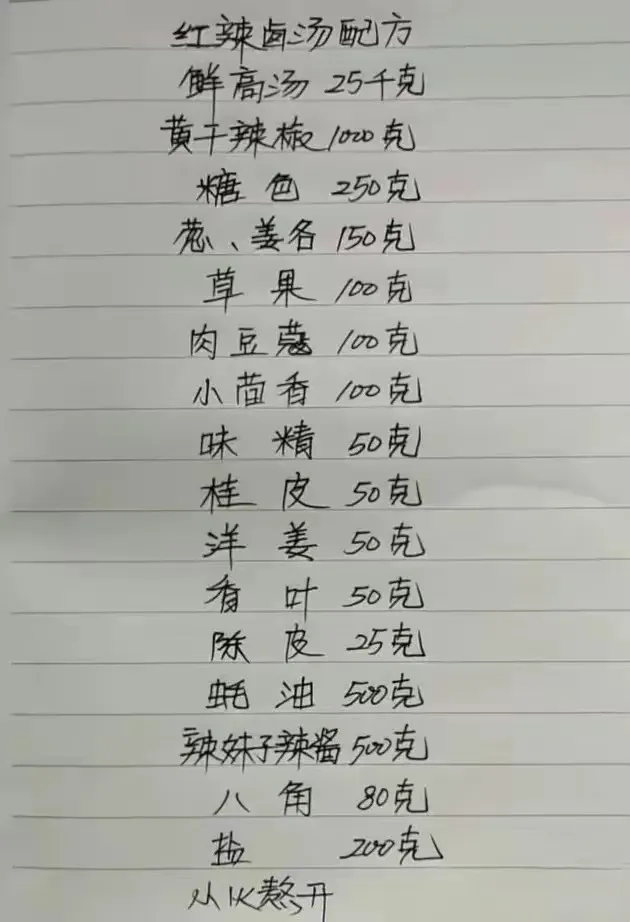 红辣卤汤配方
鲜高汤 25千克
黄干辣椒 1000克
糖色 250克
葱、姜各 150克
草果 100克
肉豆蔻 100克
小茴香 100克
味精 50克
桂皮 50克
洋姜 50克
香叶 50克
陈皮 25克
蚝油 500克
辣妹子辣酱 500克
八角 80克
盐 200克
小火熬开